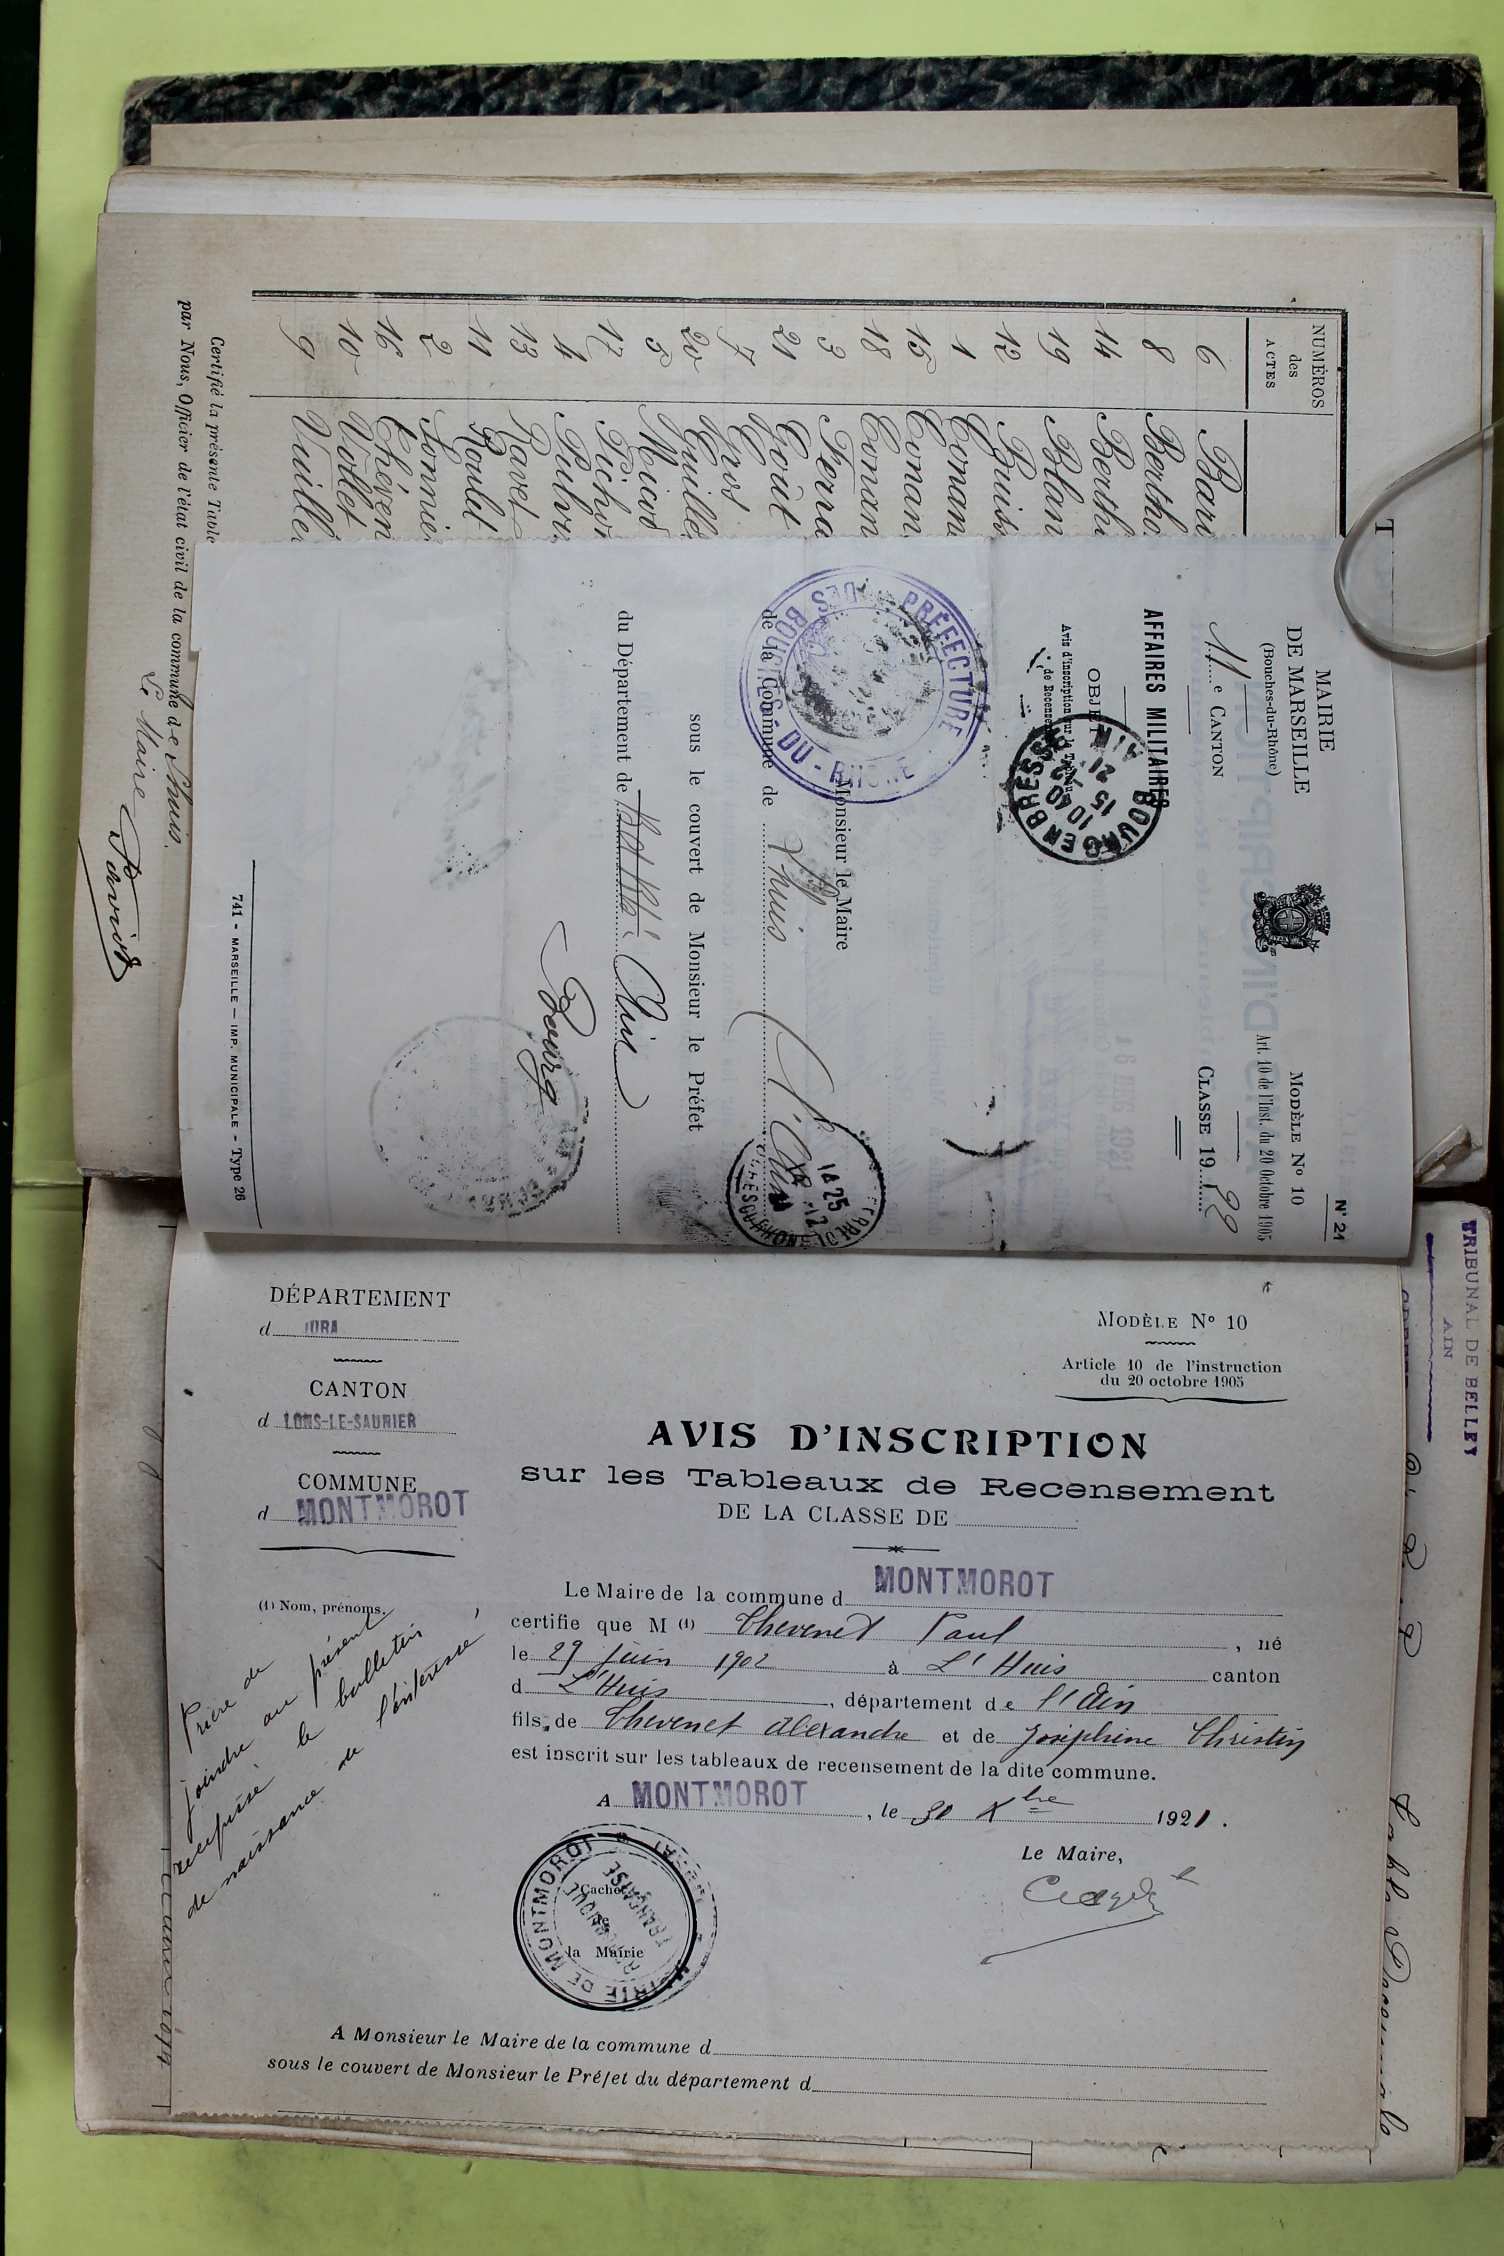 NUMÉROS
des
ACTES
6 Bar
8 Bertho
14 Berthi
19 Blan
12 Buiss
1 Conan
15 Conan
18 Conan
3 Ferra
21 Goût
7
20 Guille
5 Micou
17 Pichon
4
13 Ravet
11 Roulet
2 Sonnie
16 Théven
10 Vollet
9 Vuille
Certifié la présente Table
par Nous, Officier de l'état civil de la commune de Lhuis.
Le Maire
MAIRIE
DE MARSEILLE
(Bouches-du-Rhône)
11e CANTON
AFFAIRES MILITAIRES
OBJET
Avis d'inscription sur le Tableau
de Recensement
N° 21
MODÈLE N° 10
Art. 10 de l'Inst. du 20 Octobre 1905
CLASSE 1922
PRÉFECTURE
DES BOUCHES-DU-RHÔNE
BOURG EN BRESSE
AIN
10 40
15 -12
21
Monsieur le Maire
de la Commune de Lhuis (l'Ain)
sous le couvert de Monsieur le Préfet
du Département de Ain
Bourg
14 25
741 - MARSEILLE — IMP. MUNICIPALE - Type 26
TRIBUNAL DE BELLEY
AIN
DÉPARTEMENT
d JURA
CANTON
d LONS-LE-SAUNIER
COMMUNE
d MONTMOROT
(1) Nom, prénoms.
Prière de
joindre au présent
récépissé le bulletin
de naissance de l'intéressé
MODÈLE N° 10
Article 10 de l'instruction
du 20 octobre 1905
AVIS D'INSCRIPTION
sur les Tableaux de Recensement
DE LA CLASSE DE
Le Maire de la commune d MONTMOROT
certifie que M (1) Thevenet Paul, né
le 29 juin 1902 à L'Huis canton
d L'Huis, département de l'Ain
fils de Thevenet Alexandre et de Joséphine Christin
est inscrit sur les tableaux de recensement de la dite commune.
A MONTMOROT, le 30 Xbre 1921.
Le Maire,
Cachet
de
la Mairie
MAIRIE DE MONTMOROT
RÉPUBLIQUE
FRANÇAISE
A Monsieur le Maire de la commune d
sous le couvert de Monsieur le Préfet du département d